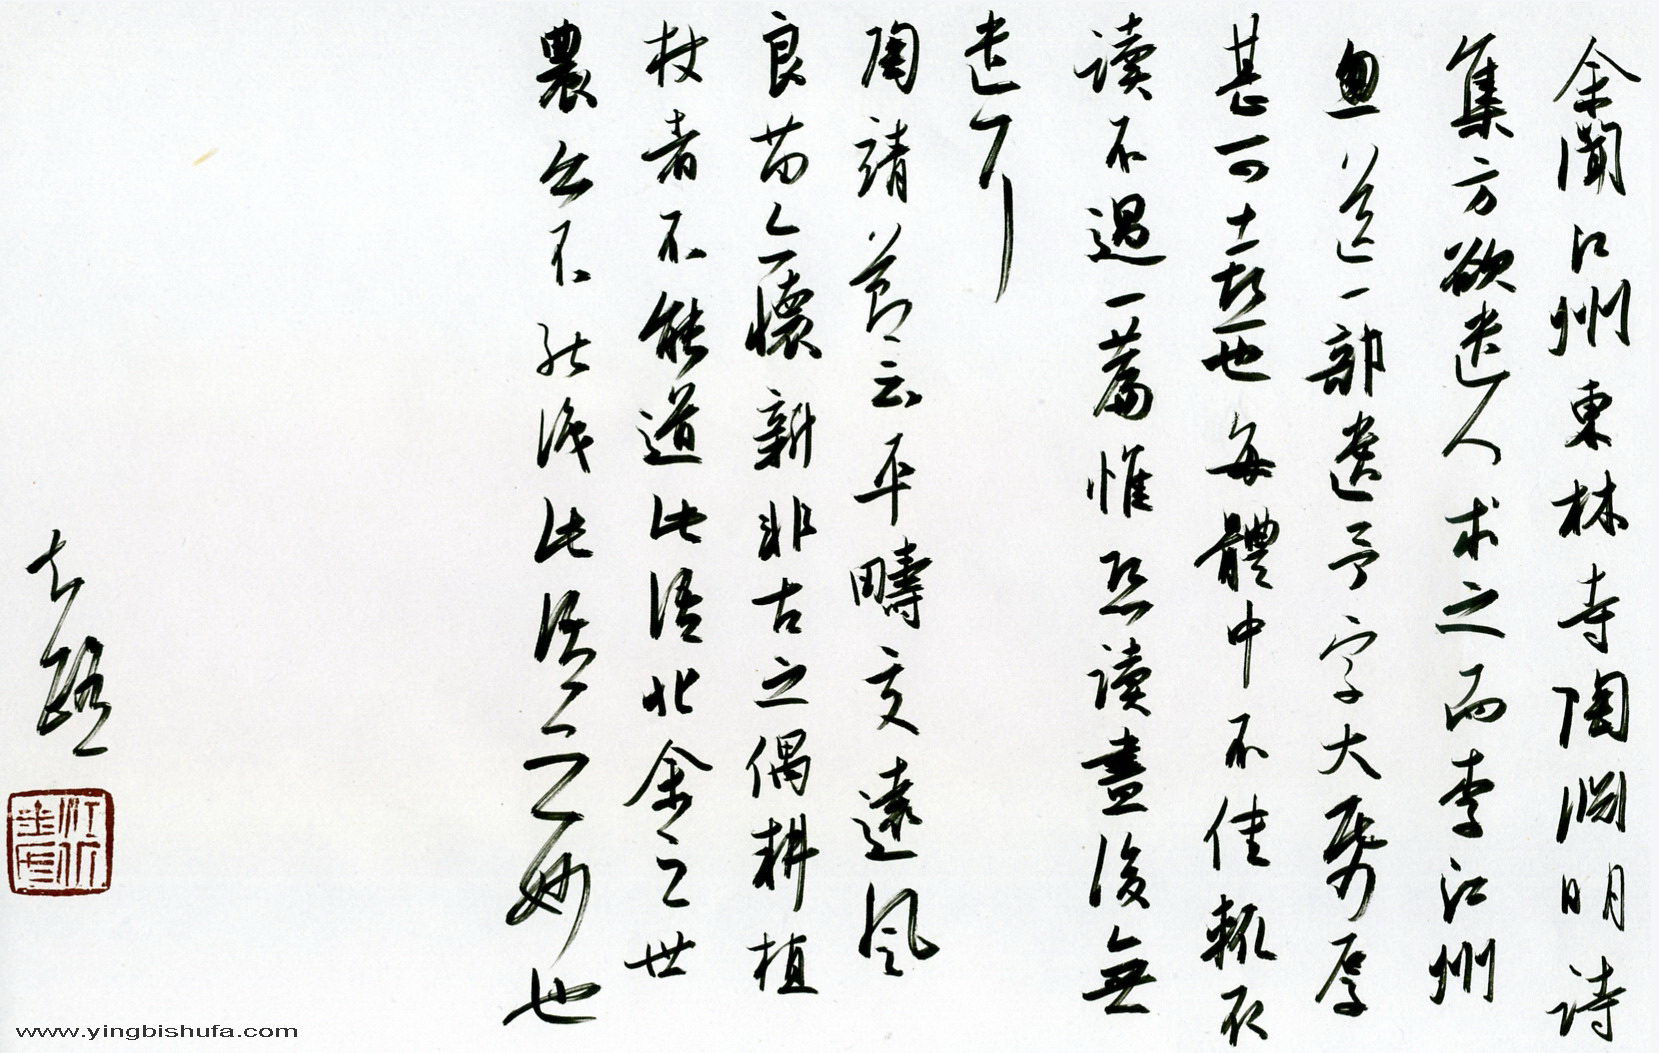 余聞江州東林寺陶淵明詩
集方欲遣人求之而李江州
忽送一部遺予字大紙厚
甚可喜也每體中不佳輒取
讀不過一篇惟恐讀盡後無
遣耳
陶靖節云平疇交遠風
良苗亦懷新非古之偶耕植
杖者不能道此語非余之世
農亦不能識此語之妙也
www.yingbishufa.com